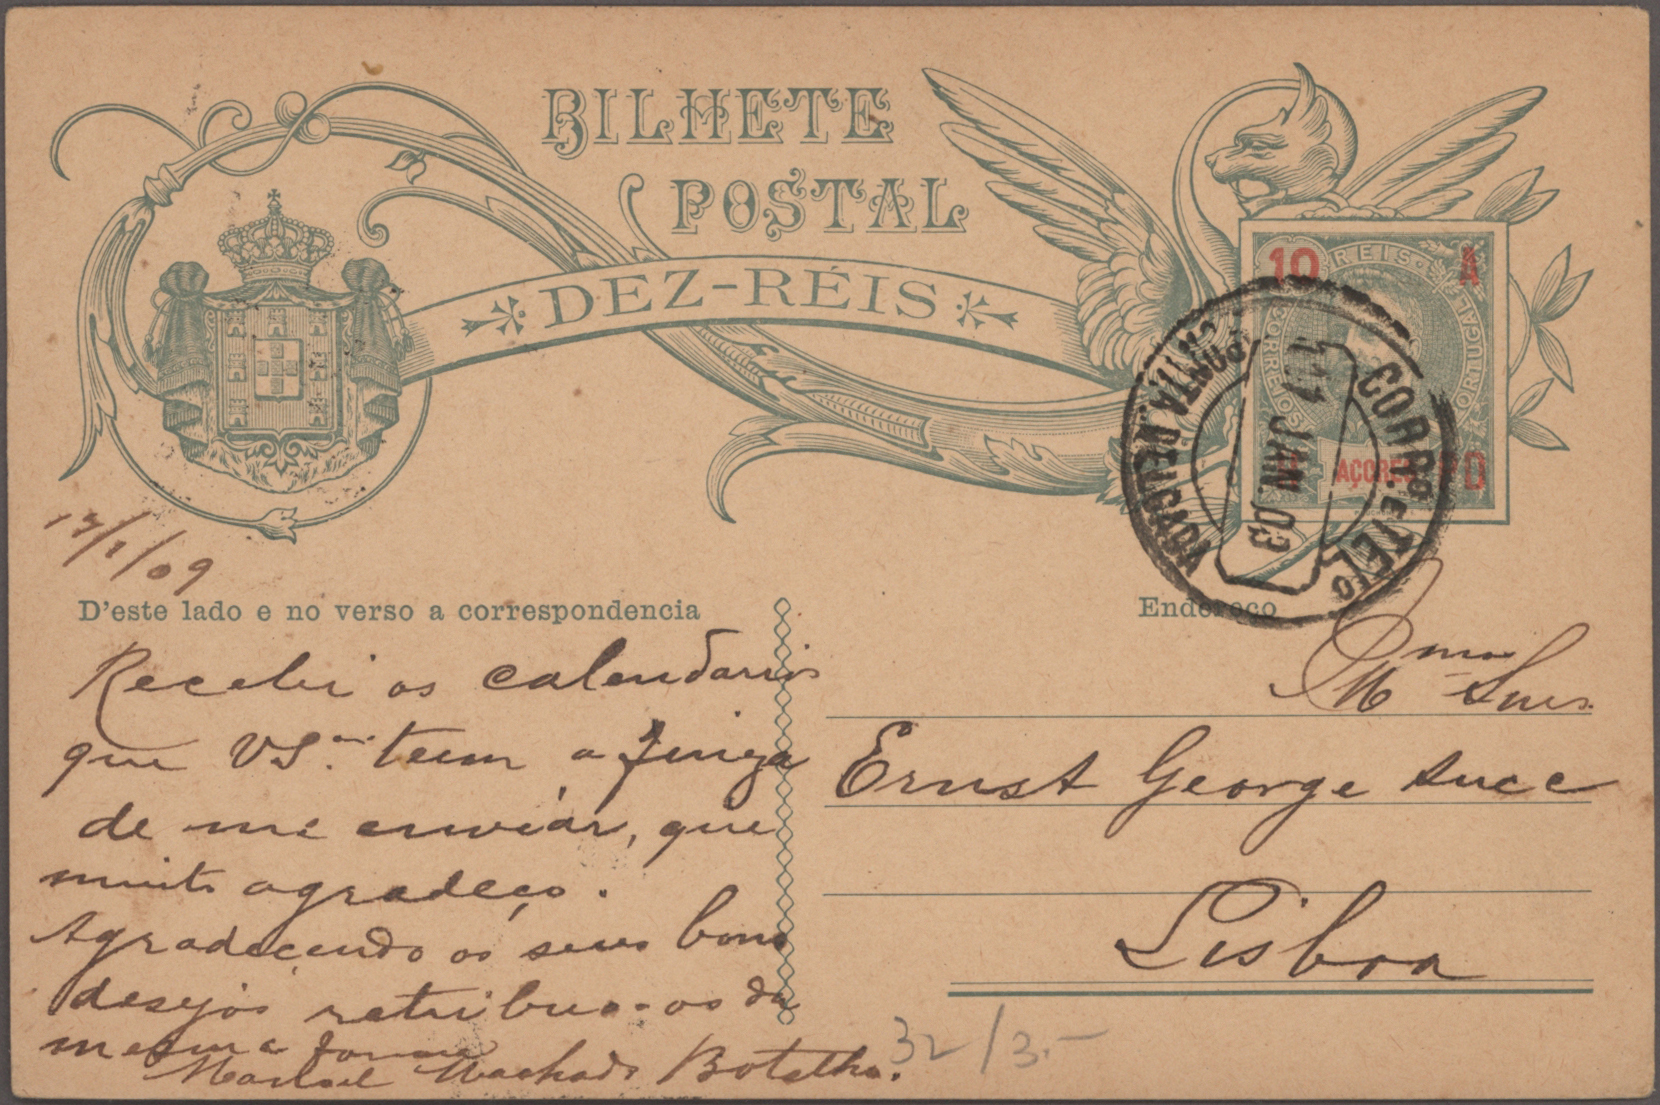 BILHETE
POSTAL
DEZ-RÉIS
10 REIS A
CORREIOS
PORTUGAL
AÇORES PD
PONTA DELGADA
JAN. 03
CORR.ºˢ E TEL.º
17/1/09
D'este lado e no verso a correspondencia
Endereço
Recebi os calendarios
que VSª teem a fineza
de me enviar, que
muito agradeço.
Agradecendo os seus bons
desejos retribuo-os da
mesma forma
Manoel Machado Botelho.
Snrs.
Ernst George Succ
Lisboa
32/3.-